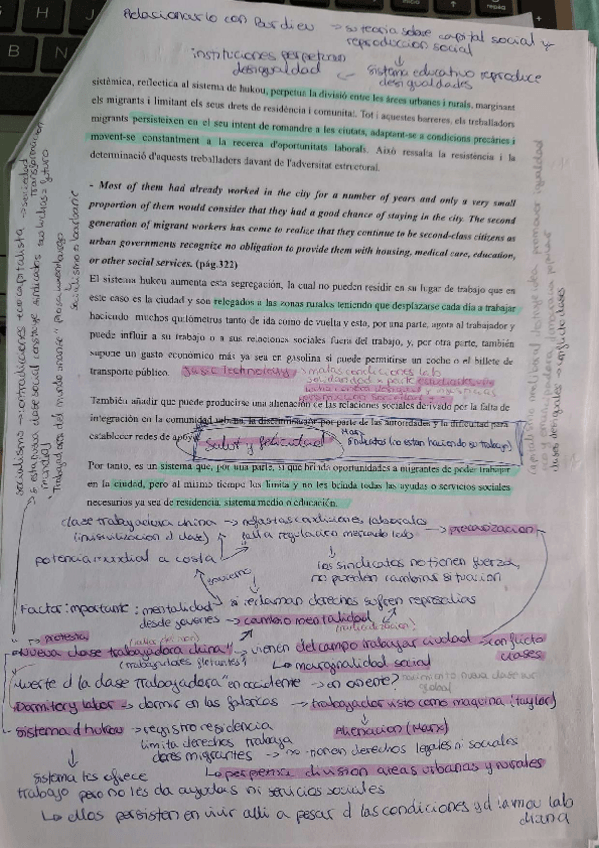 Relacionarlo con Bordieu → su teoria sobre capital social y
reproduccion social
instituciones perpetuan
desigualdad
sistema educativo reproduce
desigualdades
sistèmica, reflectica al sistema de hukou, perpetua la divisió entre les àrees urbanes i rurals, marginant
els migrants i limitant els seus drets de residència i comunitat. Tot i aquestes barreres, els treballadors
migrants persisteixen en el seu intent de romandre a les ciutats, adaptant-se a condicions precàries i
movent-se constantment a la recerca d'oportunitats laborals. Això ressalta la resistència i la
determinació d'aquests treballadors davant de l'adversitat estructural.
- Most of them had already worked in the city for a number of years and only a very small
proportion of them would consider that they had a good chance of staying in the city. The second
generation of migrant workers has come to realize that they continue to be second-class citizens as
urban governments recognize no obligation to provide them with housing, medical care, education,
or other social services. (pág.322)
El sistema hukou aumenta esta segregación, la cual no pueden residir en su lugar de trabajo que en
este caso es la ciudad y son relegados a las zonas rurales teniendo que desplazarse cada día a trabajar
haciendo muchos quilómetros tanto de ida como de vuelta y esta, por una parte, agota al trabajador y
puede influir a su trabajo o a sus relaciones sociales fuera del trabajo, y, por otra parte, también
supone un gasto económico más ya sea en gasolina si puede permitirse un coche o el billete de
transporte público.
Jasic Technology → malas condiciones lab
solidaridad x parte estudiantes
También añadir que puede producirse una alienación de las relaciones sociales derivado por la falta de
integración en la comunidad urbana, la discriminación por parte de las autoridades y la dificultad para
establecer redes de apoyo
Salut y felicidad
Marx
sindicatos (no estan haciendo su trabajo)
Por tanto, es un sistema que, por una parte, si que brinda oportunidades a migrantes de poder trabajar
en la ciudad, pero al mismo tiempo los limita y no les brinda todas las ayudas o servicios sociales
necesarios ya sea de residencia, sistema medio o educación.
clase trabajadora china → nefastas condiciones laborales
(invisivilizacion d clase)
falta regulacion mercado lab → precarizacion
potencia mundial a costa
los sindicatos no tienen fuerza,
no pueden cambiar situacion
gobierno
Factor importante: mentalidad
si reclaman derechos sufren represalias
desde jovenes → cambio mentalidad
protestas
"Nueva clase trabajadora china" → vienen del campo trabajar ciudad → conflicto
clases
↳ marginalidad social
"Muerte d la clase trabajadora" en occidente → en oriente?
nacimiento nueva clase sur
global
Dormitory labor → dormir en las fabricas → trabajador visto como maquina (taylor)
Alienacion (Marx)
Sistema d hukou → registro residencia
limita derechos trabaja
dores migrantes → no tienen derechos legales ni sociales
↳ perpetua division areas urbanas y rurales
Sistema les ofrece
trabajo pero no les da ayudas ni servicios sociales
↳ ellos persisten en vivir alli a pesar d las condiciones y d la mov lab
diaria
socialismo → contradicciones tec capitalista → sociedad
si esta nueva clase social construye sindicatos sus luchas = futuro
mundial
"Trabajadores del mundo uníos"
Rosa Luxemburgo
socialismo o barbarie
clases desiguales → conflicto clases